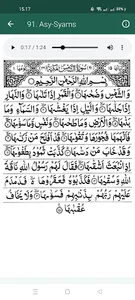 15.17
91. Asy-Syams
0:17 / 1:24
بِسْمِ اللّٰهِ الرَّحْمٰنِ الرَّحِيْمِ
وَالشَّمْسِ وَضُحٰىهَا وَالْقَمَرِ اِذَا تَلٰىهَا وَالنَّهَارِ
اِذَا جَلّٰىهَا وَالَّيْلِ اِذَا يَغْشٰىهَا وَالسَّمَآءِ وَمَا
بَنٰىهَا وَالْاَرْضِ وَمَا طَحٰىهَا وَنَفْسٍ وَّمَا سَوّٰىهَا
فَاَلْهَمَهَا فُجُوْرَهَا وَتَقْوٰىهَا قَدْ اَفْلَحَ مَنْ زَكّٰىهَا
وَقَدْ خَابَ مَنْ دَسّٰىهَا كَذَّبَتْ ثَمُوْدُ بِطَغْوٰىهَا
اِذِ انْۢبَعَثَ اَشْقٰىهَا فَقَالَ لَهُمْ رَسُوْلُ اللّٰهِ نَاقَةَ
اللّٰهِ وَسُقْيٰهَا فَكَذَّبُوْهُ فَعَقَرُوْهَا فَدَمْدَمَ
عَلَيْهِمْ رَبُّهُمْ بِذَنْۢبِهِمْ فَسَوّٰىهَا وَلَا يَخَافُ
عُقْبٰهَا